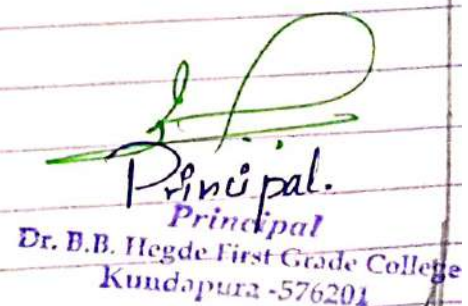 Principal.
Principal
Dr. B.B. Hegde First Grade College
Kundapura -576201